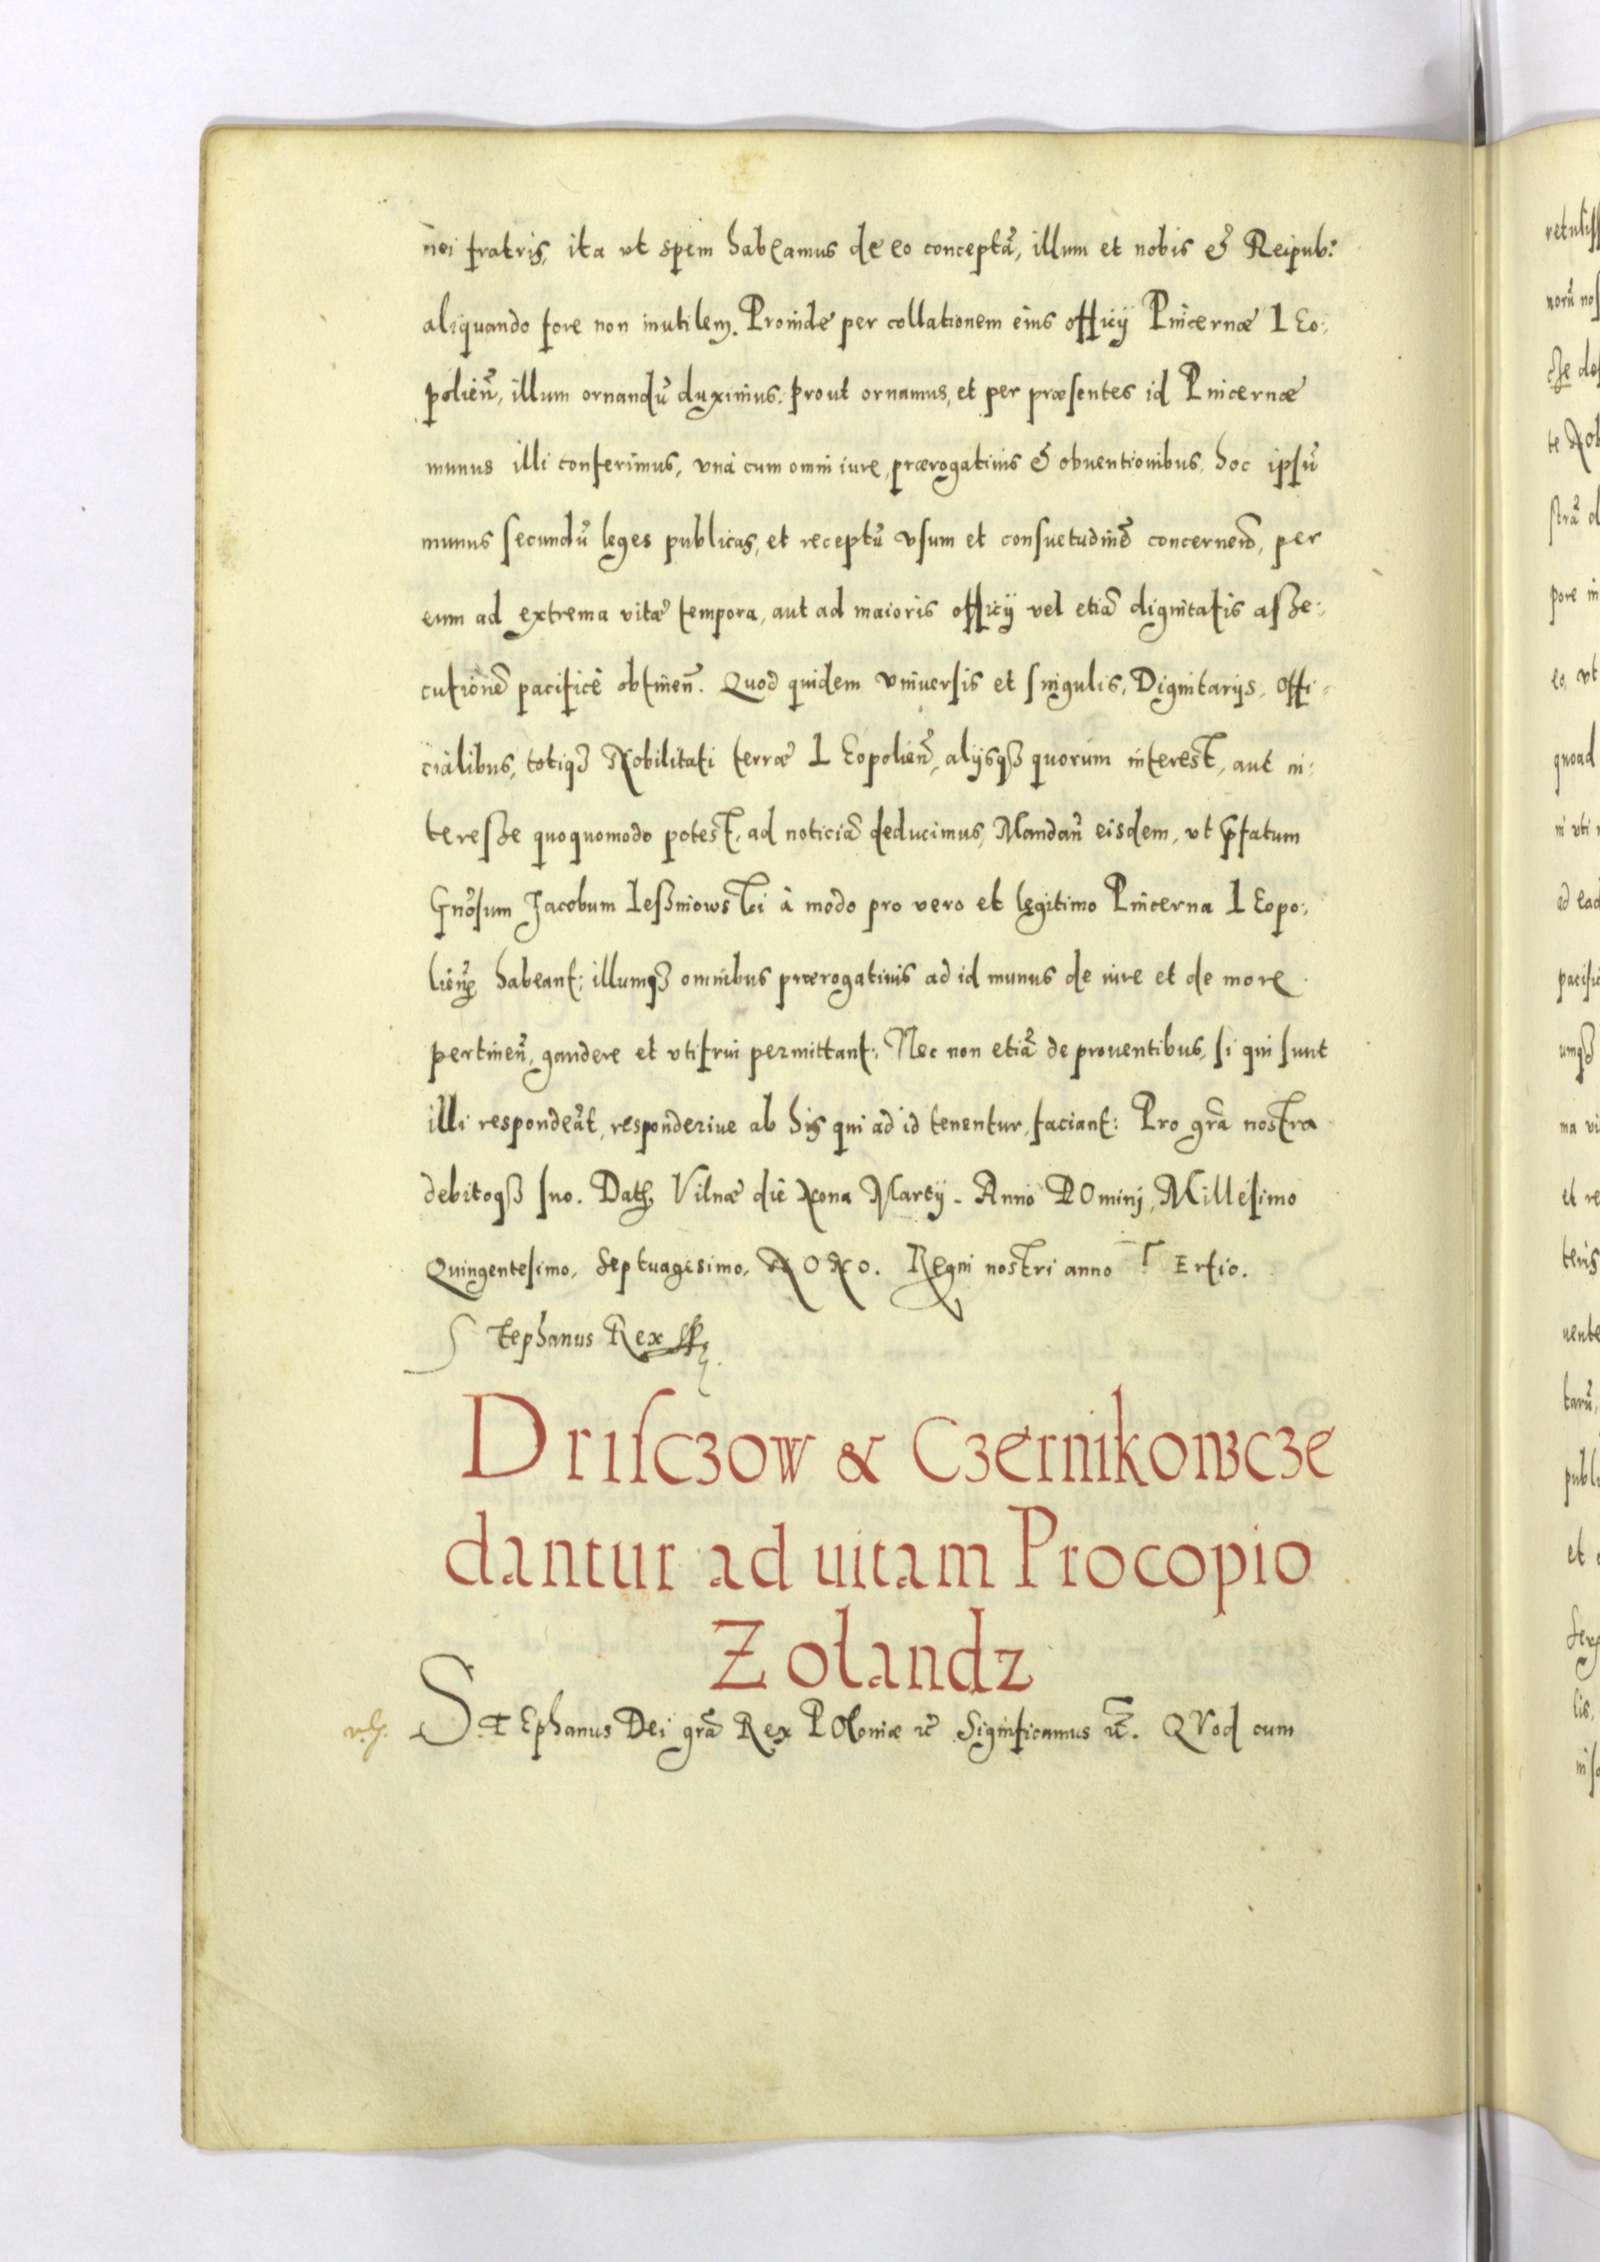 nei fratris, ita vt spem habeamus de eo conceptã, illum et nobis & Reipub:
aliquando fore non inutilem. Proinde per collationem eius officij Pincernæ LEo:
polieñ, illum ornandũ duximus, prout ornamus, et per præsentes id Pincernæ
munus illi conferimus, vnà cum omni iure, prærogatiuis & obuentionibus, hoc ipsũ
munus secundũ leges publicas, et receptũ vsum et consuetudinẽ concerneñ, per
eum ad extrema vitæ tempora, aut ad maioris officij vel etiã dignitatis asse:
cutionẽ pacificè obtineñ. Quod quidem vniuersis et singulis, Dignitarijs, offi:
cialibus, totiqꝫ Nobilitati terræ LEopolieñ, alijsqꝫ quorum interest, aut in:
teresse quoquomodo potest, ad noticiã deducimus, Mandañ eisdem, vt p̃fatum
Gñosum Jacobum Lesniowski à modo pro vero et legitimo Pincerna LEopo:
lieñ habeant: illumqꝫ omnibus prærogatiuis ad id munus de iure et de more
pertineñ, gaudere et vtifrui permittant: Nec non etiã de prouentibus, si qui sunt
illi respondeãt, responderiue ab his qui ad id tenentur, faciant: Pro grã nostra
debitoqꝫ suo. Dat. Vilnæ die Nona Martij. Anno DOmini, Millesimo
Quingentesimo, Septuagesimo, NONO. Regni nostri anno TErtio.
Stephanus Rex
Driſczow & Czernikowcze
dantur ad uitam Procopio
Zolandz
StEphanus Dei grã Rex POloniæ &c Significamus &c. QVod cum